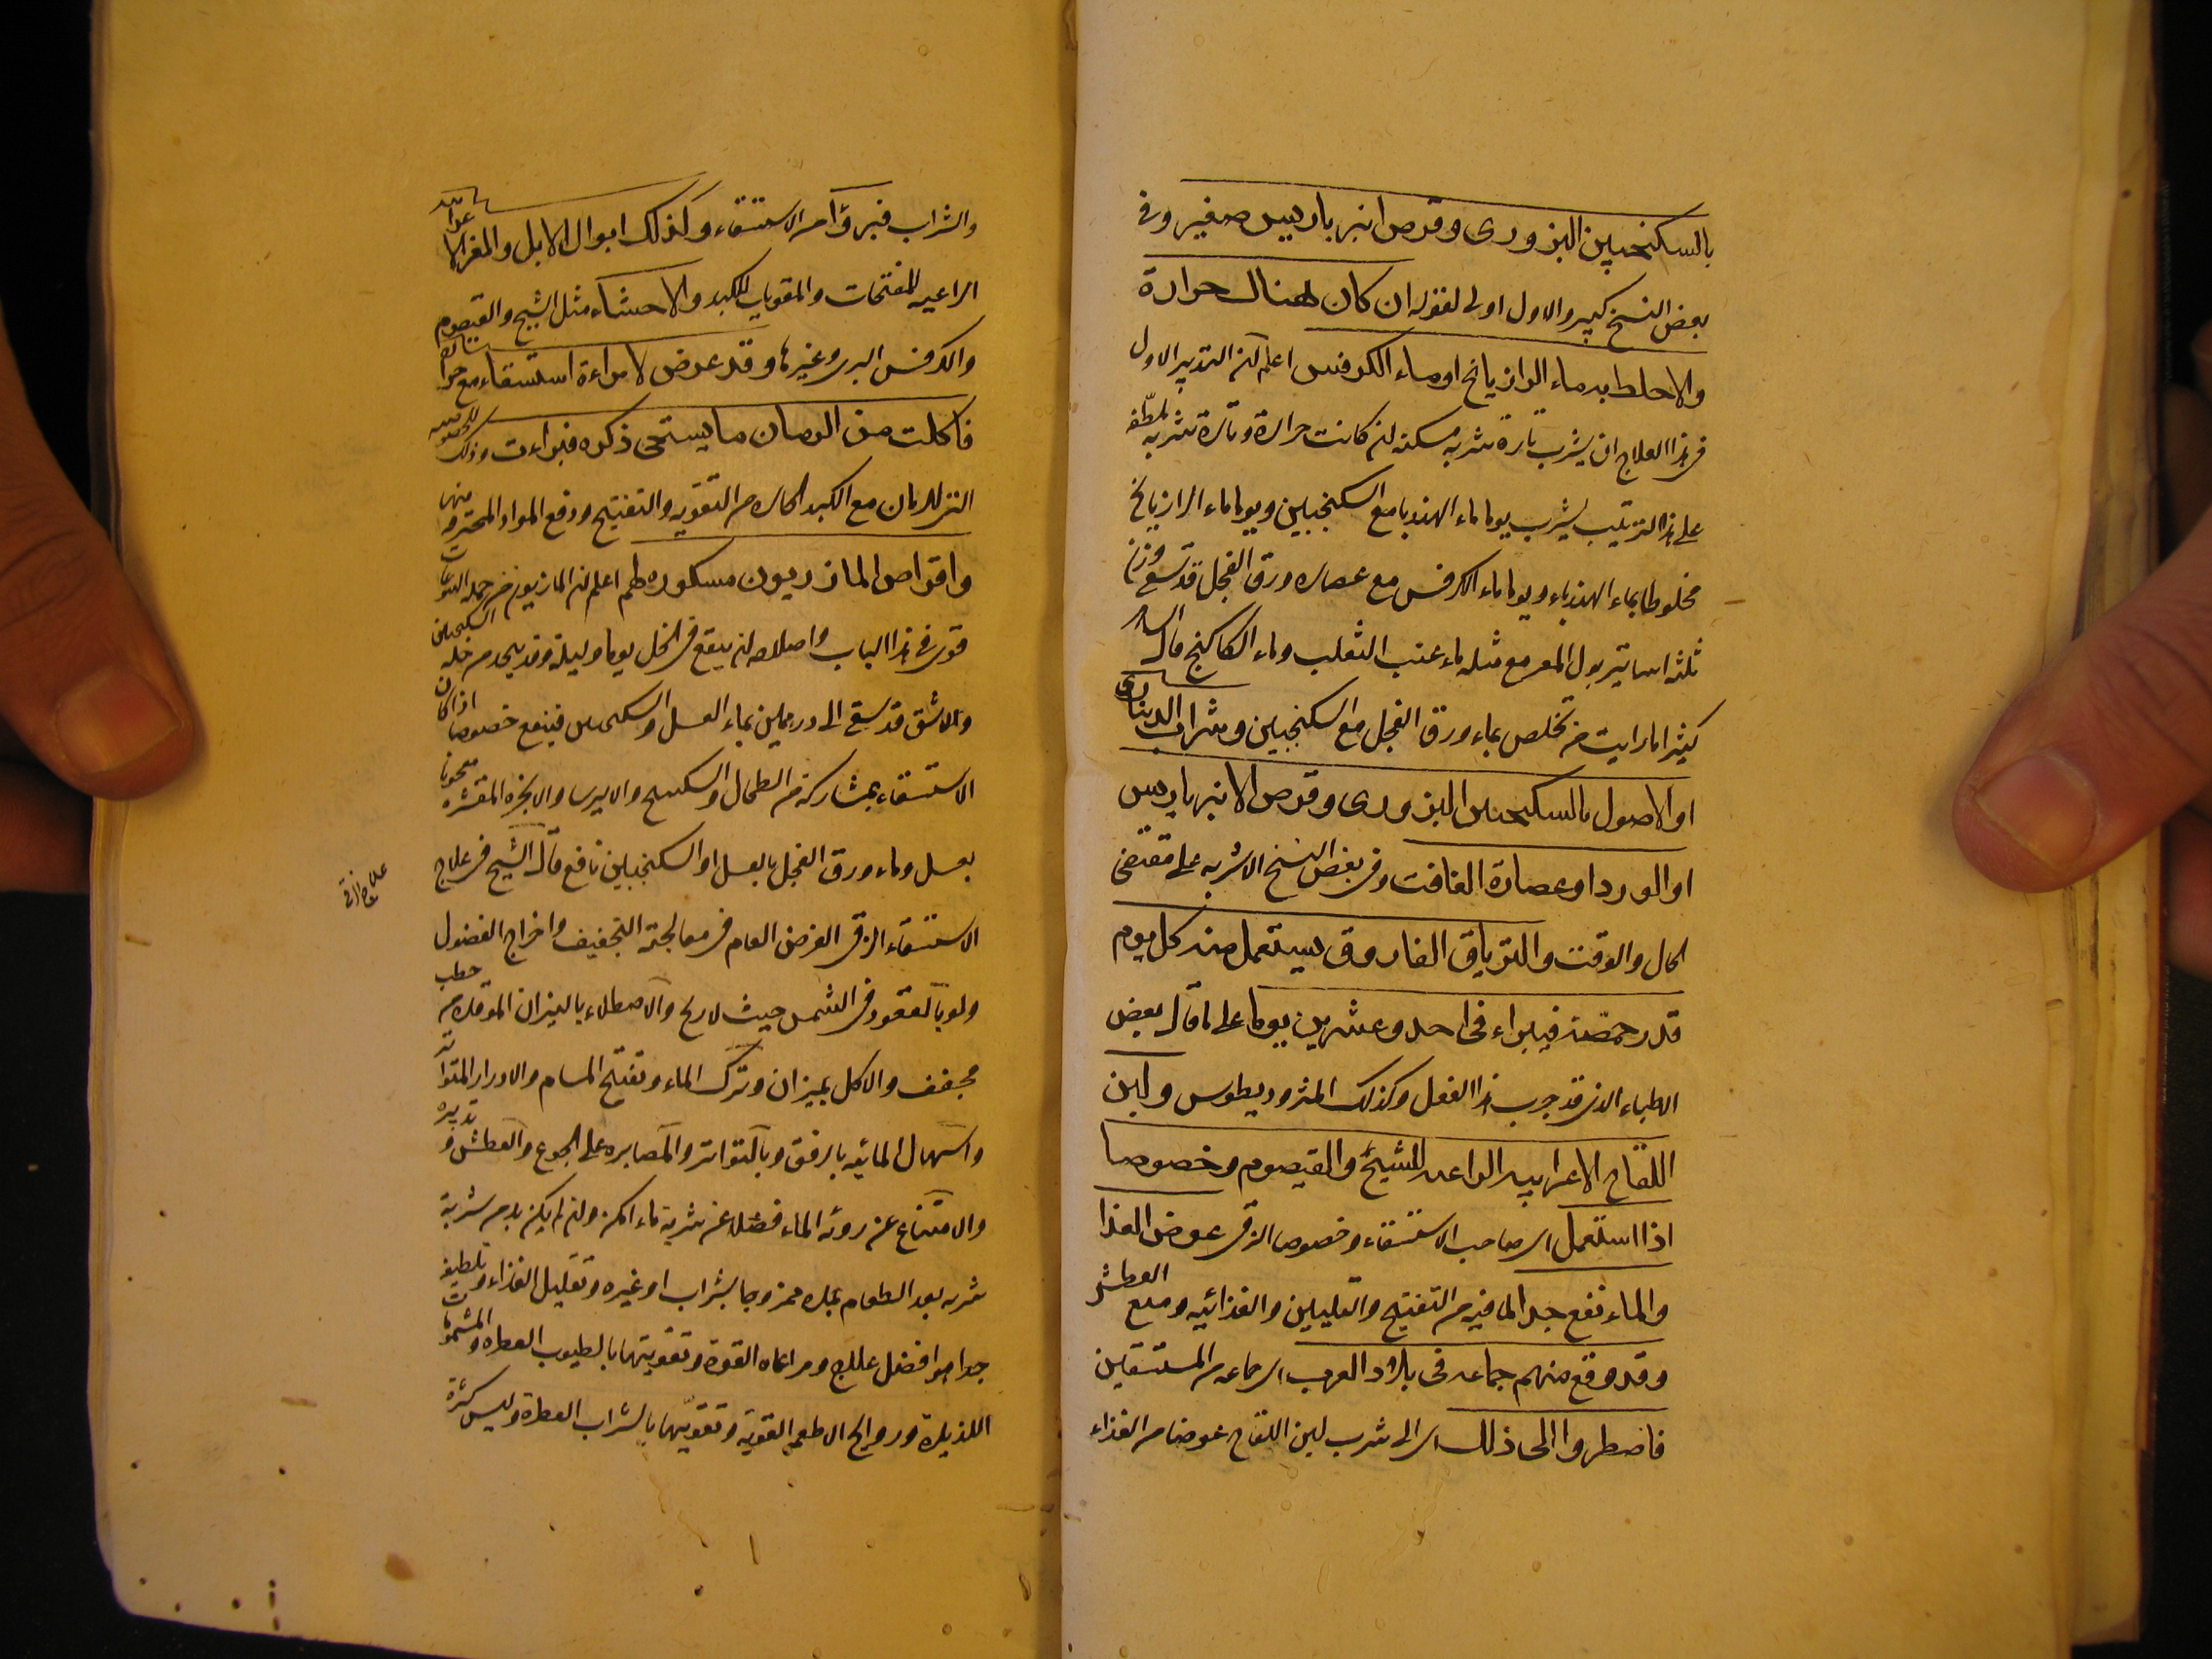 بالسكنجبين البزورى وقرص انبرباريس صغير وفى
بعض النسخ كبير والاول اولى لقوله ان كان هناك حرارة
والا خلط به ماء الرازيانج او ماء الكرفس اعلم ان التدبير الاول
فى هذا العلاج ان يشرب تارة شربة مسكنة ان كانت حرارة وتارة شربة ملطفة
على هذا الترتيب يشرب يوما ماء الهندبا مع السكنجبين ويوما ماء الرازيانج
مخلوطا بماء الهندباء ويوما ماء الكرفس مع عصارة ورق الفجل قد تسع وزن
ثلثة اساتير بول المعز مع مثله ماء عنب الثعلب وماء الكاكنج قال
كثيرا ما رايت من تخلص بماء ورق الفجل مع السكنجبين وشراب الدينارى
او الاصول بالسكنجبين البزورى وقرص الانبرباريس
او الورد او عصارة الغافت وفى بعض النسخ الاشربة على مقتضى
الحال والوقت والترياق الفاروق يستعمل منه كل يوم
قدر حمصة فيبراء فى احد وعشرين يوما على ما قال بعض
الاطباء الذى قد جرب هذا الفعل وكذلك المثروديطوس ولبن
اللقاح الاعرابيه الراعيه للشيح والقيصوم وخصوصا
اذا استعمل اى صاحب الاستسقاء وخصوصا الزقى عوض الغذا
والماء نفع جدا لما فيه من التفتيح والتليين والغذائيه ومنع العطش
وقد وقع منهم جماعه فى بلاد العرب اى جماعه من المستسقين
فاضطروا الى ذلك اى الى شرب لبن اللقاح عوضا من الغذاء
والشراب فبروءا من الاستسقاء وكذلك ابوال الابل والمعز الاعرابيه
الراعيه للمفتحات والمقويات للكبد والاحشاء مثل الشيح والقيصوم
والكرفس البرى وغيرها وقد عرض لامراءة استسقاء مع حرارة
فاكلت من الرمان ما يستحى ذكره فبراءت وذلك للخصوصيه
التى للرمان مع الكبد الحاره من التقويه والتفتيح ودفع المواد المحترقه منها
واقراص المازريون مسكوره لهم اعلم ان المازريون من جملة اليتوعات
قوى فى هذا الباب واصلاحه ان ينقع فى الخل يوما وليلة وقد يتخذ من خله السكنجبين
والاشق قد يسقى الى درهمين بماء العسل والسكنجبين فينفع خصوصا اذا كان
الاستسقاء بمشاركة من الطحال والسكبينج والايرسا والانجره المقشره معجونا
بعسل وماء ورق الفجل بالعسل او السكنجبين نافع قال الشيخ فى علاج
علاج الزقى
الاستسقاء الزقى الغرض العام فى معالجته التجفيف واخراج الفضول
ولو بالقعود فى الشمس حيث لا ريح والاصطلاء بالنيران الموقدة من حطب
مجفف والاكل بميزان وترك الماء وتفتيح المسام والادرار المتواتر
واسهال المائيه بالرفق وبالتواتر والمصابره على الجوع والعطش وتدبيره
والامتناع عن روية الماء فضلا عن شربة ما امكن وان لم يكن بد من شربة
شربه بعد الطعام بمدة ممزوجا بشراب او غيره وتقليل الغذاء وتلطيفه
جدا هو افضل علاج ومراعاه القوة وتقويتها بالطيوب العطره والمشمومات
اللذيذة وروايح الاطعمة القوية وتقويتها بالشراب العطرة وليس كثرة